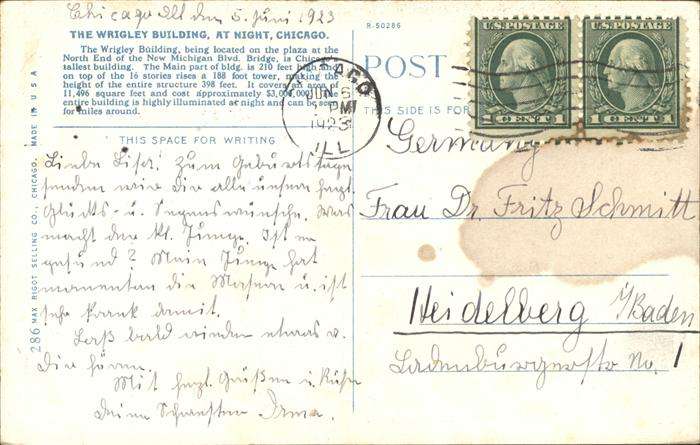 Chicago Ill den 5. Juni 1923
THE WRIGLEY BUILDING, AT NIGHT, CHICAGO.
The Wrigley Building, being located on the plaza at the
North End of the New Michigan Blvd. Bridge, is Chicago's
tallest building. The Main part of bldg. is 210 feet high and
on top of the 16 stories rises a 188 foot tower, making the
height of the entire structure 398 feet. It covers an area of
11,496 square feet and cost approximately $3,000,000. The
entire building is highly illuminated at night and can be seen
for miles around.
THIS SPACE FOR WRITING
Liebe Lisa! Zum Geburtstage
senden wir Dir alle unsere herzl.
Glücks- u. Segenswünsche. Was
macht der kl. Junge. Ist er
gesund? Mein Junge hat
momentan die Masern u. ist
sehr krank damit.
Lass bald wieder etwas v.
Dir hören.
Mit herzl. Grüßen u. Küssen
Deine Schwester Irma.
286 MAX RIGOT SELLING CO., CHICAGO. MADE IN U S A
R-50286
POST
THIS SIDE IS FOR
CAGO
JUN 5
PM
1923
ILL
U.S. POSTAGE
1 CENT 1
U.S. POSTAGE
1 CENT 1
Germany
Frau Dr. Fritz Schmitt
Heidelberg i/Baden
Ladenburgerstr No. 1